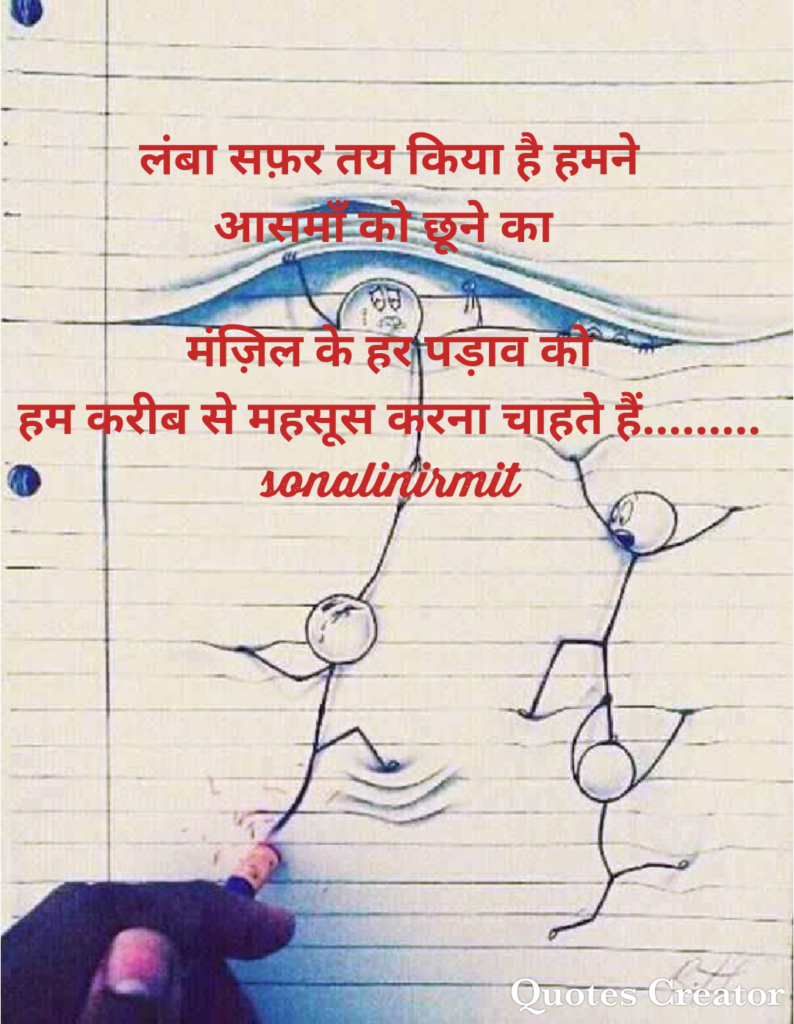 लंबा सफ़र तय किया है हमने
आसमाँ को छूने का
मंज़िल के हर पड़ाव को
हम करीब से महसूस करना चाहते हैं.........
sonalinirmit
Quotes Creator